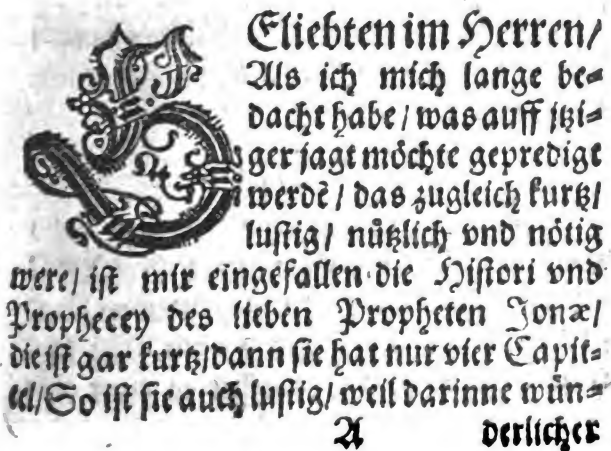 GEliebten im Herren/
Als ich mich lange be=
dacht habe / was auff jtzi=
ger jagt möchte gepredigt
werdē / das zugleich kurtz/
lustig / nützlich vnd nötig
were/ ist mir eingefallen die Histori vnd
Prophecey des lieben Propheten Jonæ/
die ist gar kurtz/dann sie hat nur vier Capit=
tel/So ist sie auch lustig/ weil darinne wün=
A derlicher